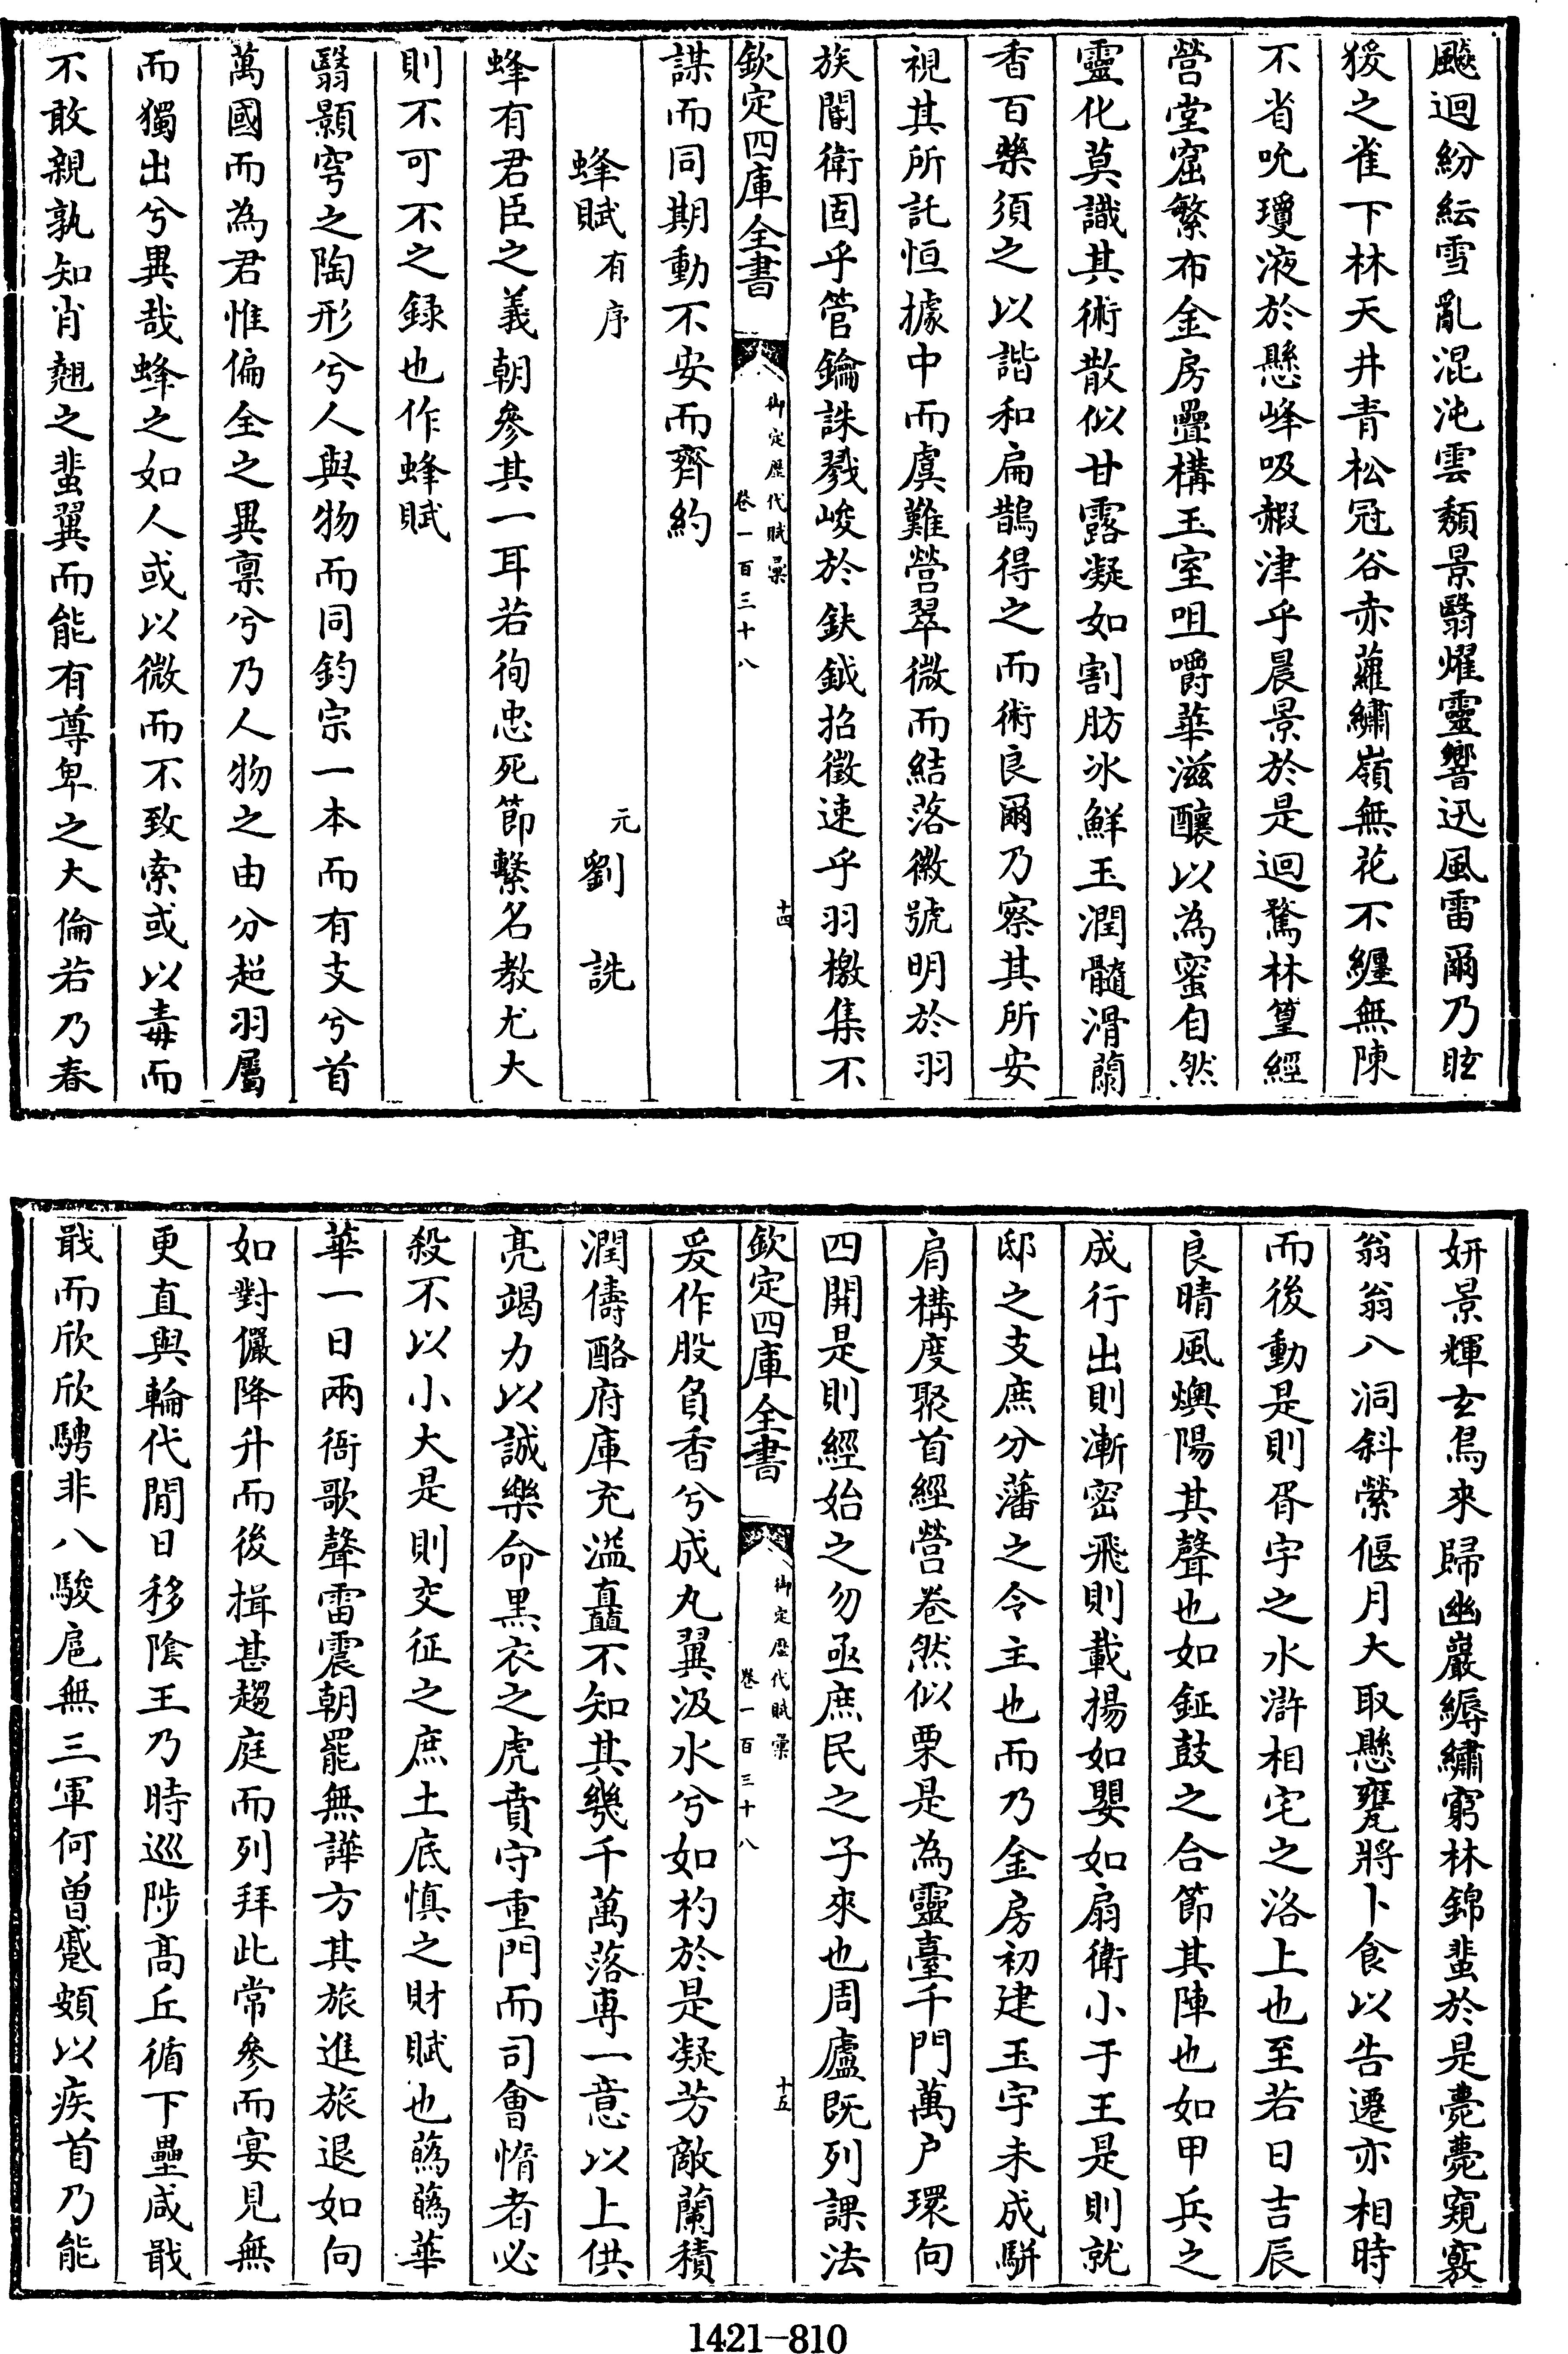 飈迴紛紜雪亂混沌雲頹景翳燿靈響迅風雷爾乃眩
猨之雀下林天井青松冠谷赤蘿繡嶺無花不纏無陳
不省吮瓊液於懸峰吸赮津乎晨景於是迴騖林篁經
營堂窟繁布金房疊構玉室咀嚼華滋釀以為蜜自然
靈化莫識其術散似甘露凝如割肪冰鮮玉潤髓滑蘭
香百藥須之以諧和扁鵲得之而術良爾乃察其所安
視其所託恒據中而虞難營翠微而結落徽號明於羽
族閽衛固乎管鑰誅戮峻於鈇鉞招徵速乎羽檄集不
欽定四庫全書
御定歷代賦彙
卷一百三十八
十四
謀而同期動不安而齊約
蜂賦有序
元劉詵
蜂有君臣之義朝參其一耳若徇忠死節繫名教尤大
則不可不之録也作蜂賦
翳顥穹之陶形兮人與物而同鈞宗一本而有支兮首
萬國而為君惟偏全之異禀兮乃人物之由分超羽屬
而獨出兮異哉蜂之如人或以微而不致索或以毒而
不敢親孰知肖翹之蜚翼而能有尊卑之大倫若乃春
妍景輝玄鳥來歸幽巖縟繡窮林錦蜚於是薨薨窺竅
翁翁八洞斜縈偃月大取懸甕將卜食以告遷亦相時
而後動是則胥宇之水滸相宅之洛上也至若日吉辰
良晴風燠陽其聲也如鉦鼓之合節其陣也如甲兵之
成行出則漸密飛則載揚如嬰如扇衛小于王是則就
邸之支庶分藩之令主也而乃金房初建玉宇未成駢
肩構度聚首經營卷然似栗是為靈臺千門萬户環向
四開是則經始之勿亟庶民之子來也周廬既列課法
欽定四庫全書
御定歷代賦彙
卷一百三十八
十五
爰作股負香兮成丸翼汲水兮如杓於是凝芳敵蘭積
潤儔酪府庫充溢矗不知其幾千萬落專一意以上供
亮竭力以誠樂命黑衣之虎賁守重門而司會惰者必
殺不以小大是則交征之庶土底慎之財賦也蘤蘤華
華一日兩衙歌聲雷震朝罷無譁方其旅進旅退如向
如對儼降升而後揖甚趨庭而列拜此常參而宴見無
更直與輪代閒日移陰王乃時巡陟髙丘循下壘咸戢
戢而欣欣騁非八駿扈無三軍何曽蹙頞以疾首乃能
1421-810